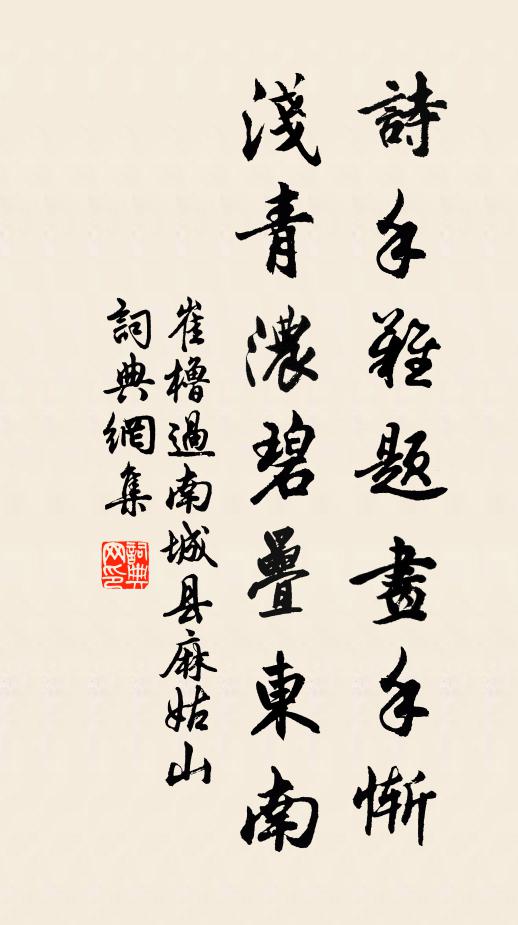 詩手難題畫手慚
淺青濃碧疊東南
崔櫓過南城县麻姑山
詞典網集
詞典网印